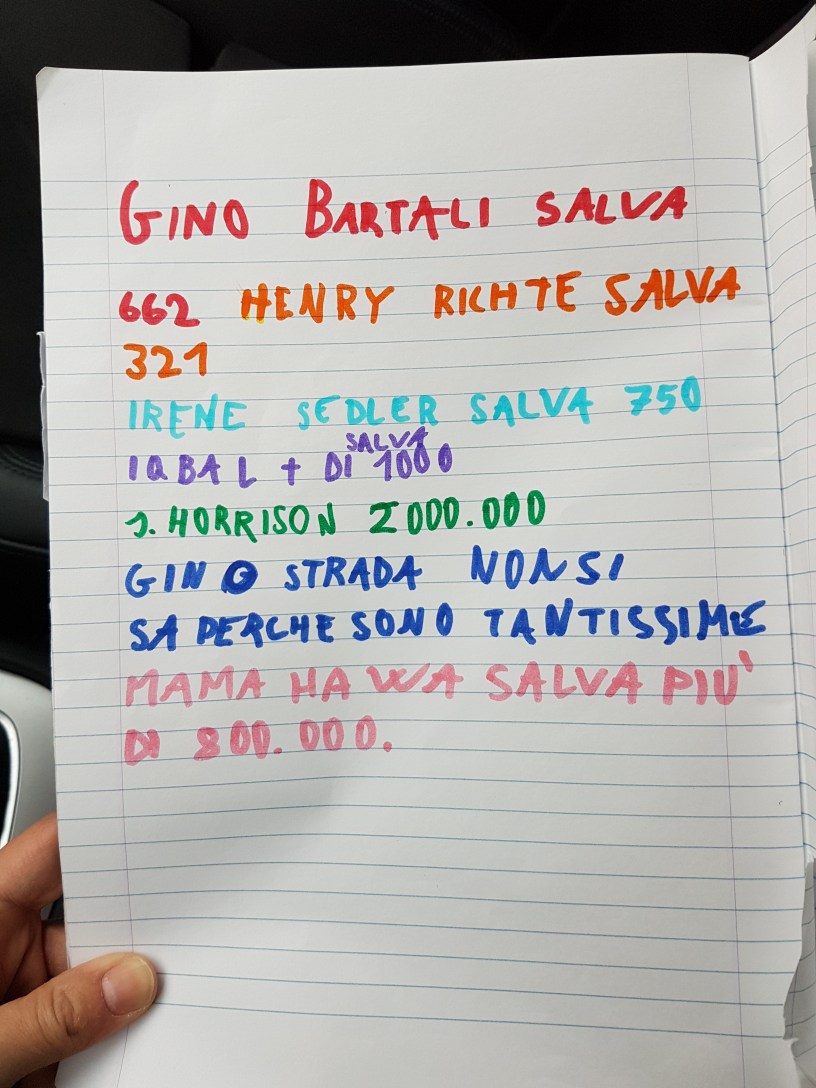 GINO BARTALI SALVA
662 HENRY RICHTE SALVA
321
IRENE SEDLER SALVA 750
SALVA
IQBAL + DI 1000
J. HORRISON 2000.000
GINO STRADA NON SI
SA PERCHE SONO TANTISSIME
MAMA HAWA SALVA PIU'
DI 800.000.